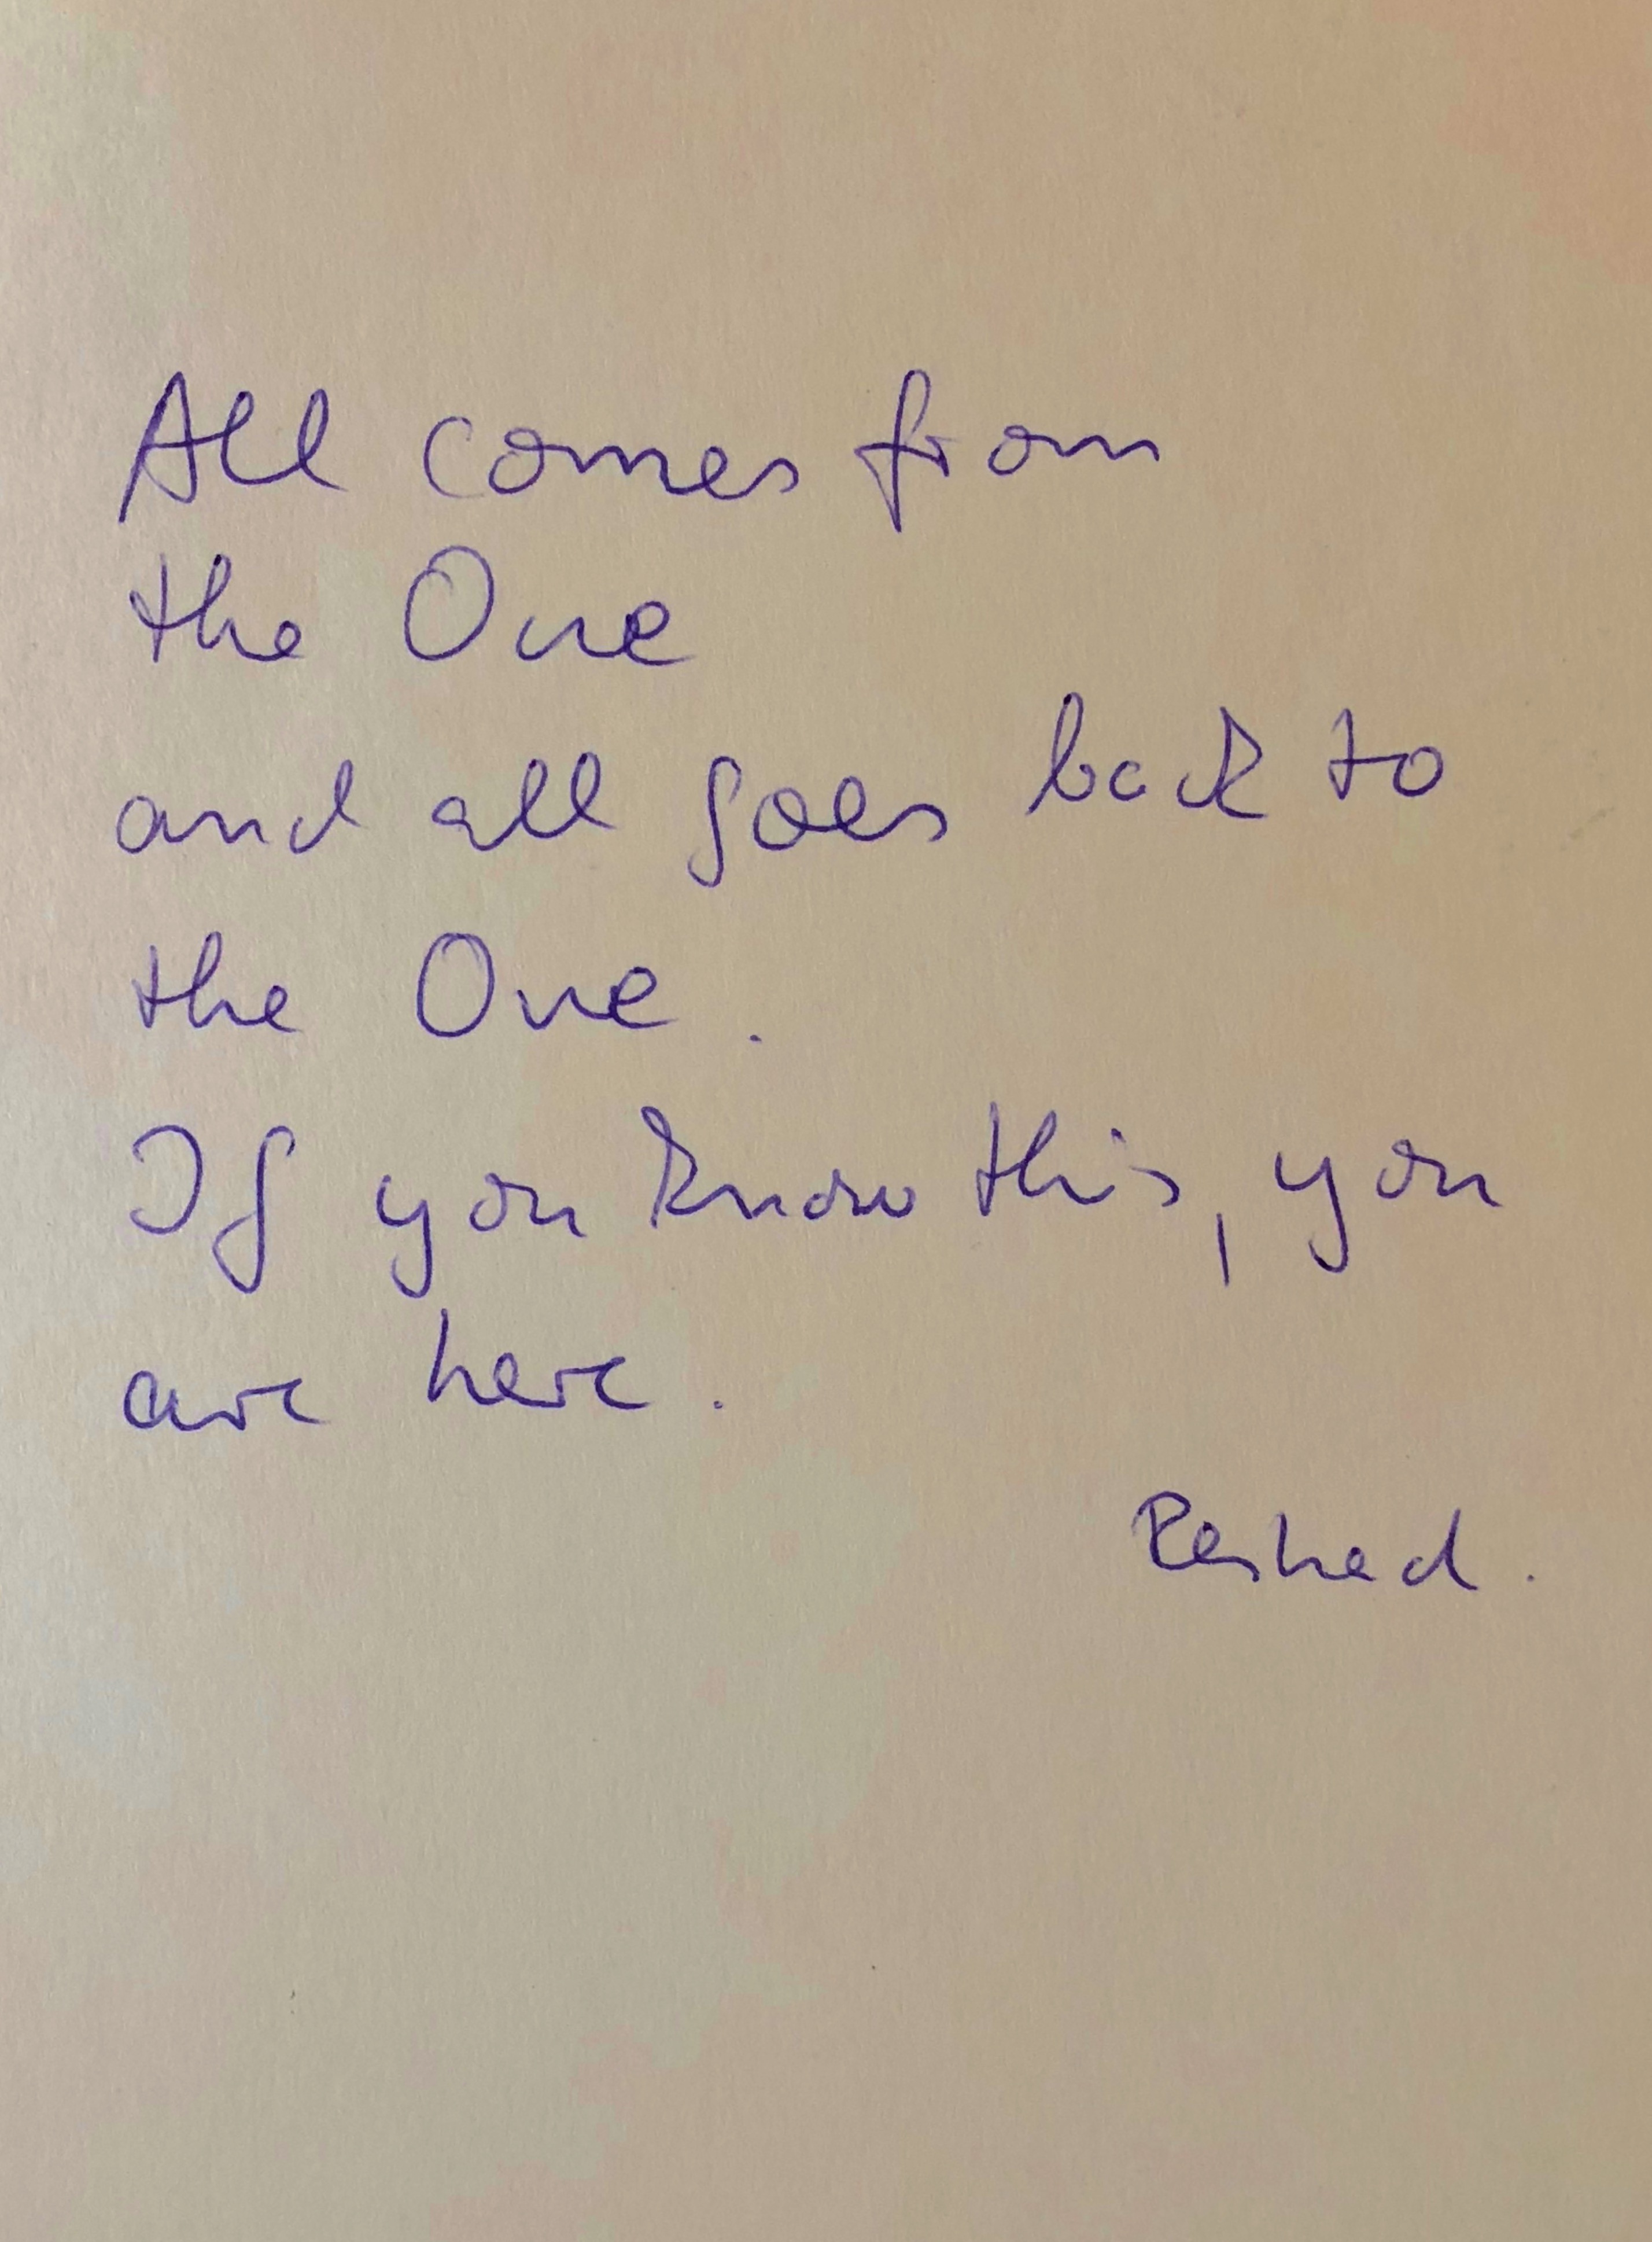 All comes from
the One
and all goes back to
the One.
If you know this, you
are here.
Reshad.